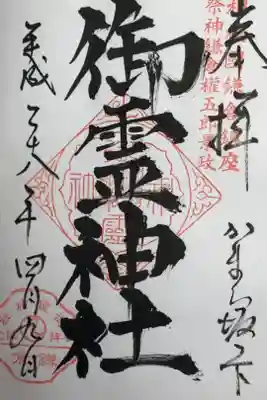 奉拝
相州鎌倉鎮座
祭神鎌倉權五郎景政
かまくら坂ノ下
御霊神社
平成二十八年四月九日